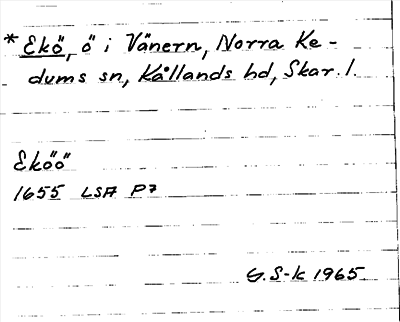 * Ekö, ö i Vänern, Norra Ke-
dums sn, Kållands hd, Skar. l.
Eköö
1655 LSA P7
G. S-k 1965